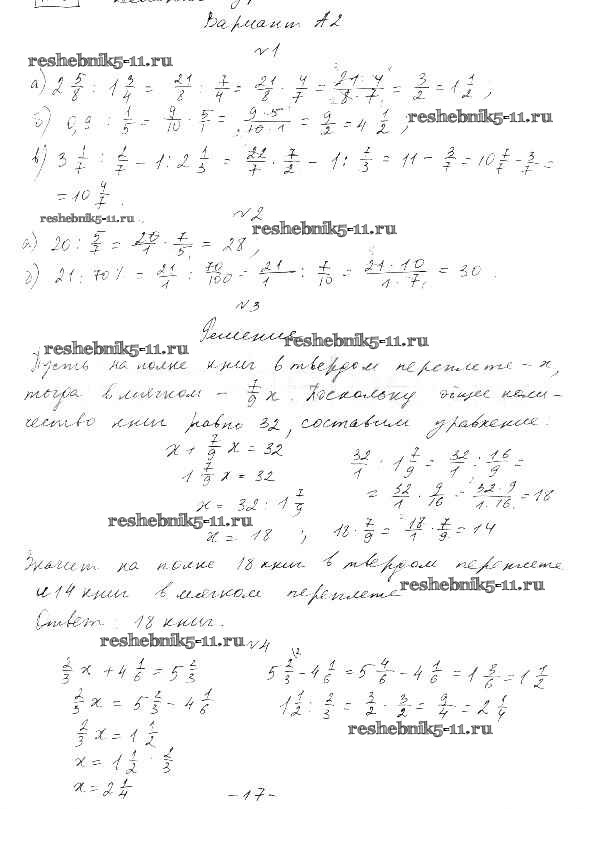 Вариант А2
№1
reshebnik5-11.ru
а) 2 5/8 : 1 3/4 = 21/8 : 7/4 = 21/8 · 4/7 = 21·4/8·7 = 3/2 = 1 1/2 ;
б) 0,9 : 1/5 = 9/10 · 5/1 = 9·5/10·1 = 9/2 = 4 1/2 ; reshebnik5-11.ru
в) 3 1/7 : 2/7 - 1 : 2 1/3 = 22/7 · 7/2 - 1 : 7/3 = 11 - 3/7 = 10 7/7 - 3/7 =
= 10 4/7 .
reshebnik5-11.ru №2
reshebnik5-11.ru
а) 20 : 5/7 = 20/1 · 7/5 = 28 ,
б) 21 : 70% = 21/1 : 70/100 = 21/1 : 7/10 = 21·10/1·7 = 30 .
№3
Решение reshebnik5-11.ru
reshebnik5-11.ru
Пусть на полке книг в твердом переплете - x,
тогда в мягком - 7/9 x . Поскольку общее коли-
чество книг равно 32, составим уравнение:
x + 7/9 x = 32 32/1 : 1 7/9 = 32/1 : 16/9 =
1 7/9 x = 32 = 32/1 · 9/16 = 32·9/1·16 = 18
x = 32 : 1 7/9
reshebnik5-11.ru
x = 18 ; 18 · 7/9 = 18/1 · 7/9 = 14
Значит на полке 18 книг в твердом переплете
и 14 книг в мягком переплете reshebnik5-11.ru
Ответ: 18 книг.
reshebnik5-11.ru №4
2/3 x + 4 1/6 = 5 2/3 5 2/3 \2 - 4 1/6 = 5 4/6 - 4 1/6 = 1 3/6 = 1 1/2
2/3 x = 5 2/3 - 4 1/6 1 1/2 : 2/3 = 3/2 · 3/2 = 9/4 = 2 1/4
2/3 x = 1 1/2 reshebnik5-11.ru
x = 1 1/2 : 2/3
x = 2 1/4
-17-